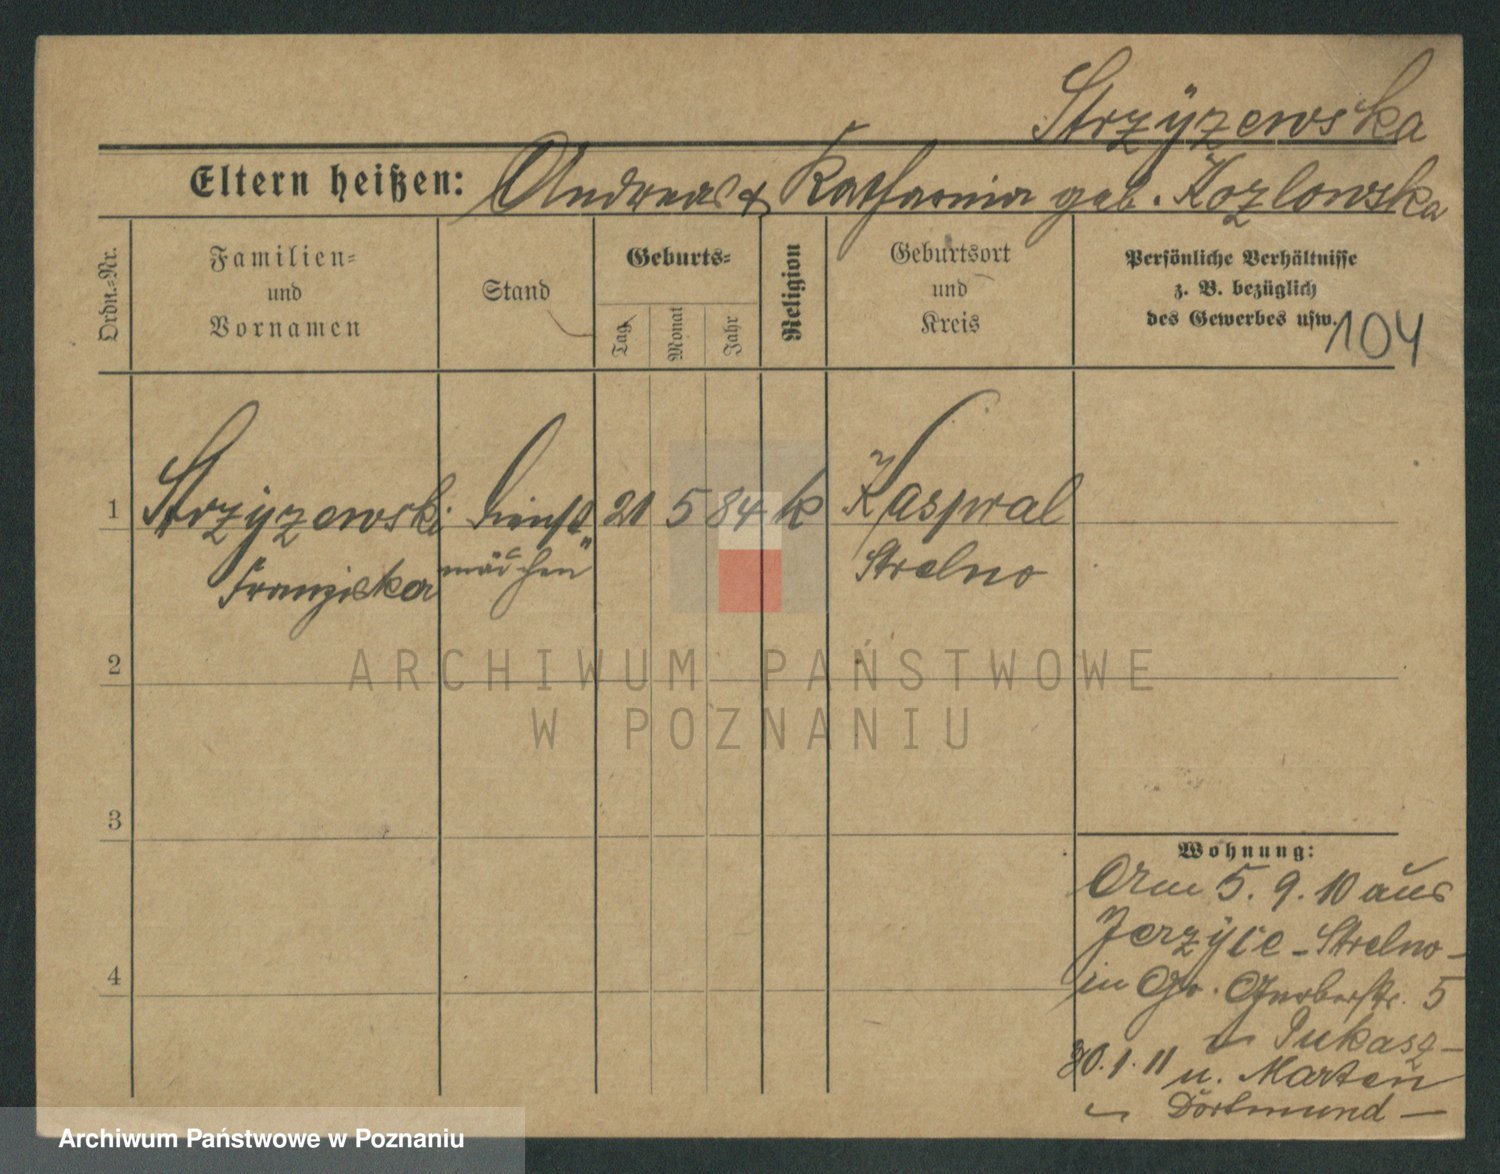 Strzÿzewska
Eltern heißen: Andreas & Katharina geb. Kozlowska
Ordn.-Nr.
Familien-
und
Vornamen
Stand
Geburts-
Tag
Monat
Jahr
Religion
Geburtsort
und
Kreis
Persönliche Verhältnisse
z. B. bezüglich
des Gewerbes usw.
104
1 Strzÿzewski Dienst 21 5 84 k Kaspral
Franziska mädchen Strelno
2
ARCHIWUM PAŃSTWOWE
W POZNANIU
3
Wohnung:
Am 5. 9. 10 aus
Jerzÿce - Strelno -
in Gr. Gerberstr. 5
Lukasz -
30. 1. 11 n. Marten
Dortmund -
4
Archiwum Państwowe w Poznaniu